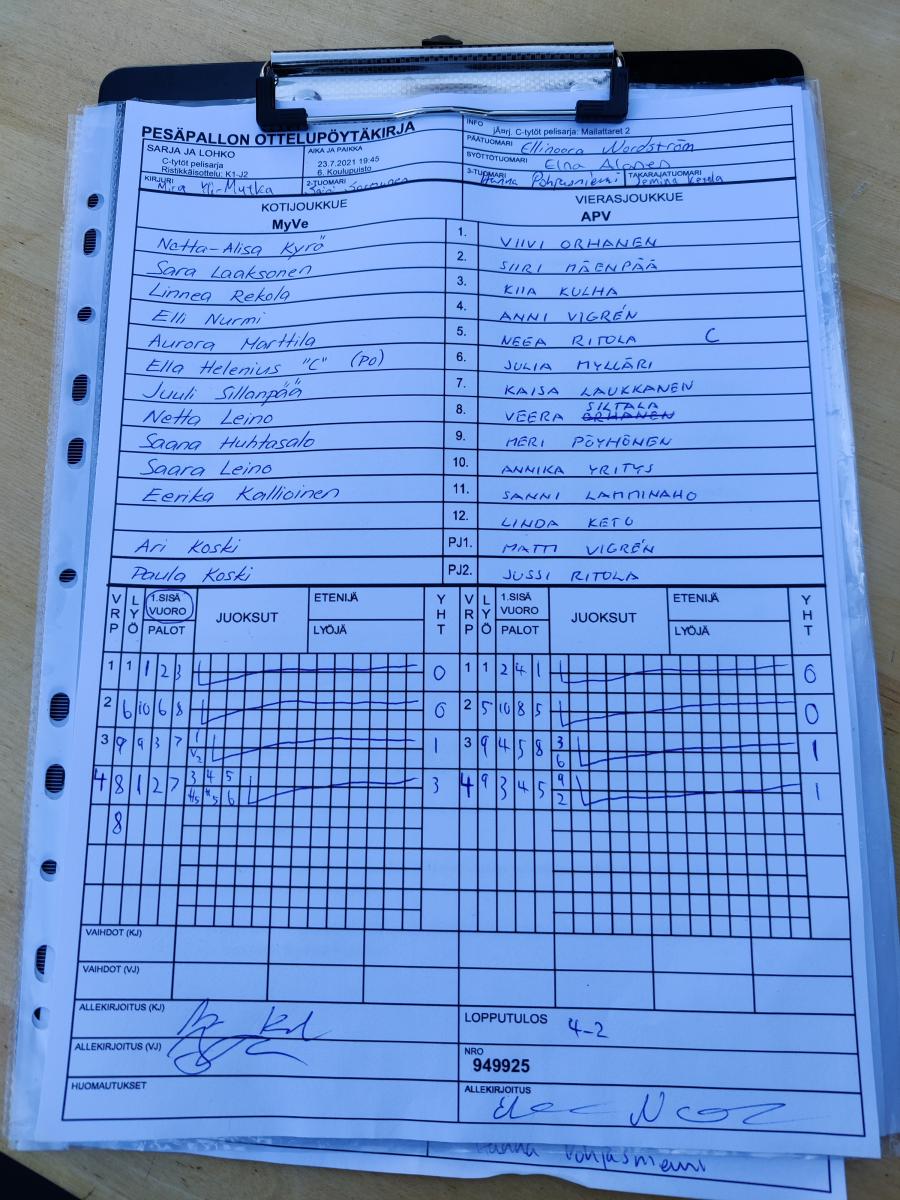 PESÄPALLON OTTELUPÖYTÄKIRJA
INFO
jÄsrj. C-tytöt pelisarja: Mailattaret 2
PÄÄTUOMARI Ellinoora Nordström
SARJA JA LOHKO
C-tytöt pelisarja
Ristikkäisottelu: K1-J2
AIKA JA PAIKKA
23.7.2021 19:45
6. Koulupuisto
SYÖTTÖTUOMARI Elna Alanen
KIRJURI
2-TUOMARI
3-TUOMARI Hanna Pohjasniemi
TAKARAJATUOMARI
KOTIJOUKKUE
MyVe
VIERASJOUKKUE
APV
Netta-Alisa Kyrö 1. VIIVI ORHANEN
Sara Laaksonen 2. SIIRI MÄENPÄÄ
Linnea Rekola 3. KIIA KULHA
Elli Nurmi 4. ANNI VIGRÉN
Aurora Marttila 5. NEEA RITOLA C
Ella Helenius "C" (PO) 6. JULIA MYLLÄRI
Juuli Sillanpää 7. KAISA LAUKKANEN
Netta Leino 8. VEERA ORHANEN SILTALA
Saana Huhtasalo 9. MERI PÖYHÖNEN
Saara Leino 10. ANNIKA YRITYS
Eerika Kallioinen 11. SANNI LAMMINAHO
12. LINDA KETO
Ari Koski PJ1. MATTI VIGRÉN
Paula Koski PJ2. JUSSI RITOLA
VRP LYÖ 1.SISÄ VUORO PALOT JUOKSUT ETENIJÄ LYÖJÄ YHT VRP LYÖ 1.SISÄ VUORO PALOT JUOKSUT ETENIJÄ LYÖJÄ YHT
1 1 1 2 3 0 1 1 2 4 1 0
2 6 10 6 8 0 2 5 10 8 5 0
3 9 9 3 7 1 V2 1 3 9 4 5 8 3 6 1
4 8 1 2 7 3 4 5 6 3 4 9 3 4 5 9 2 1
8
VAIHDOT (KJ)
VAIHDOT (VJ)
ALLEKIRJOITUS (KJ)
LOPPUTULOS 4-2
ALLEKIRJOITUS (VJ)
NRO
949925
HUOMAUTUKSET
ALLEKIRJOITUS